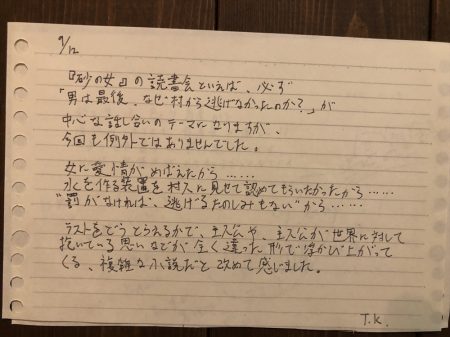 9/12
『砂の女』の読書会といえば、必ず
「男は最後、なぜ村から逃げなかったのか?」が
中心な話し合いのテーマになりますが、
今回も例外ではありませんでした。
女に愛情がめばえたから……
水を作る装置を村人に見せて認めてもらいたかったから……
"罰がなければ、逃げるたのしみもない"から……
ラストをどうとらえるかで、主人公や、主人公が世界に対して
抱いている思いなどが全く違った形で浮かび上がって
くる、複雑な小説だと改めて感じました。
T.K.